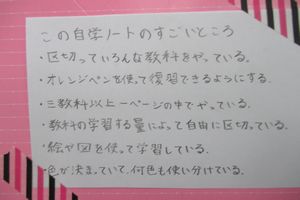 この自学ノートのすごいところ
・区切っていろんな教科をやっている。
・オレンジペンを使って復習できるようにする。
・三教科以上一ページの中でやっている。
・教科の学習する量によって自由に区切っている。
・絵や図を使って学習している。
・色が決まっていて、何色も使い分けている。